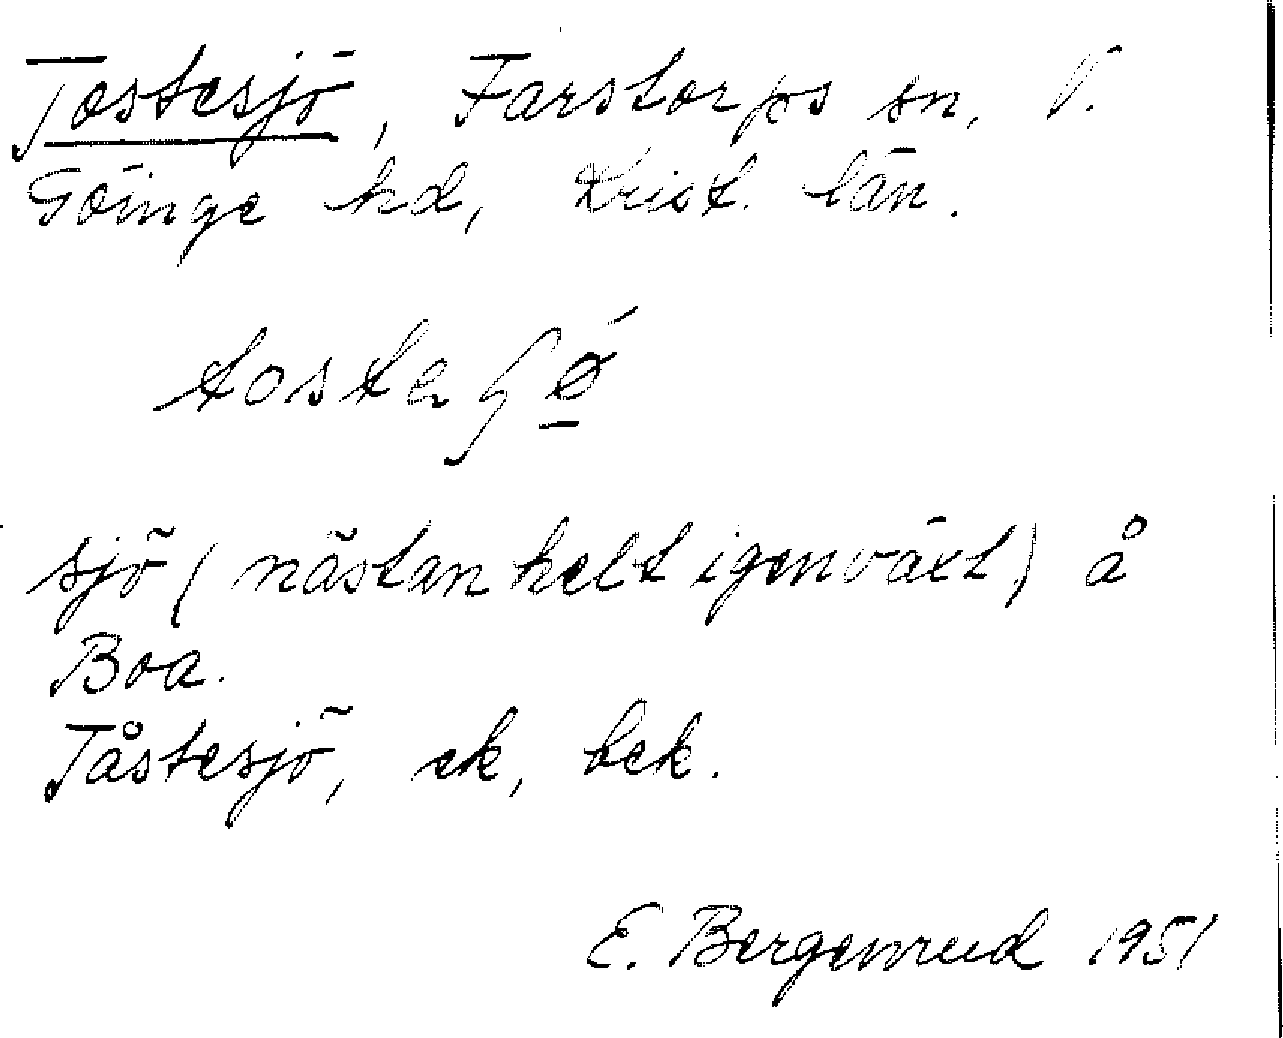 Tostesjö, Farstorps sn, V.
Göinge hd, Krist. län.
sjö (nästan helt igenväxt) å
Boa.
Tåstesjö, ek, bek.
E. Bergenrud 1951